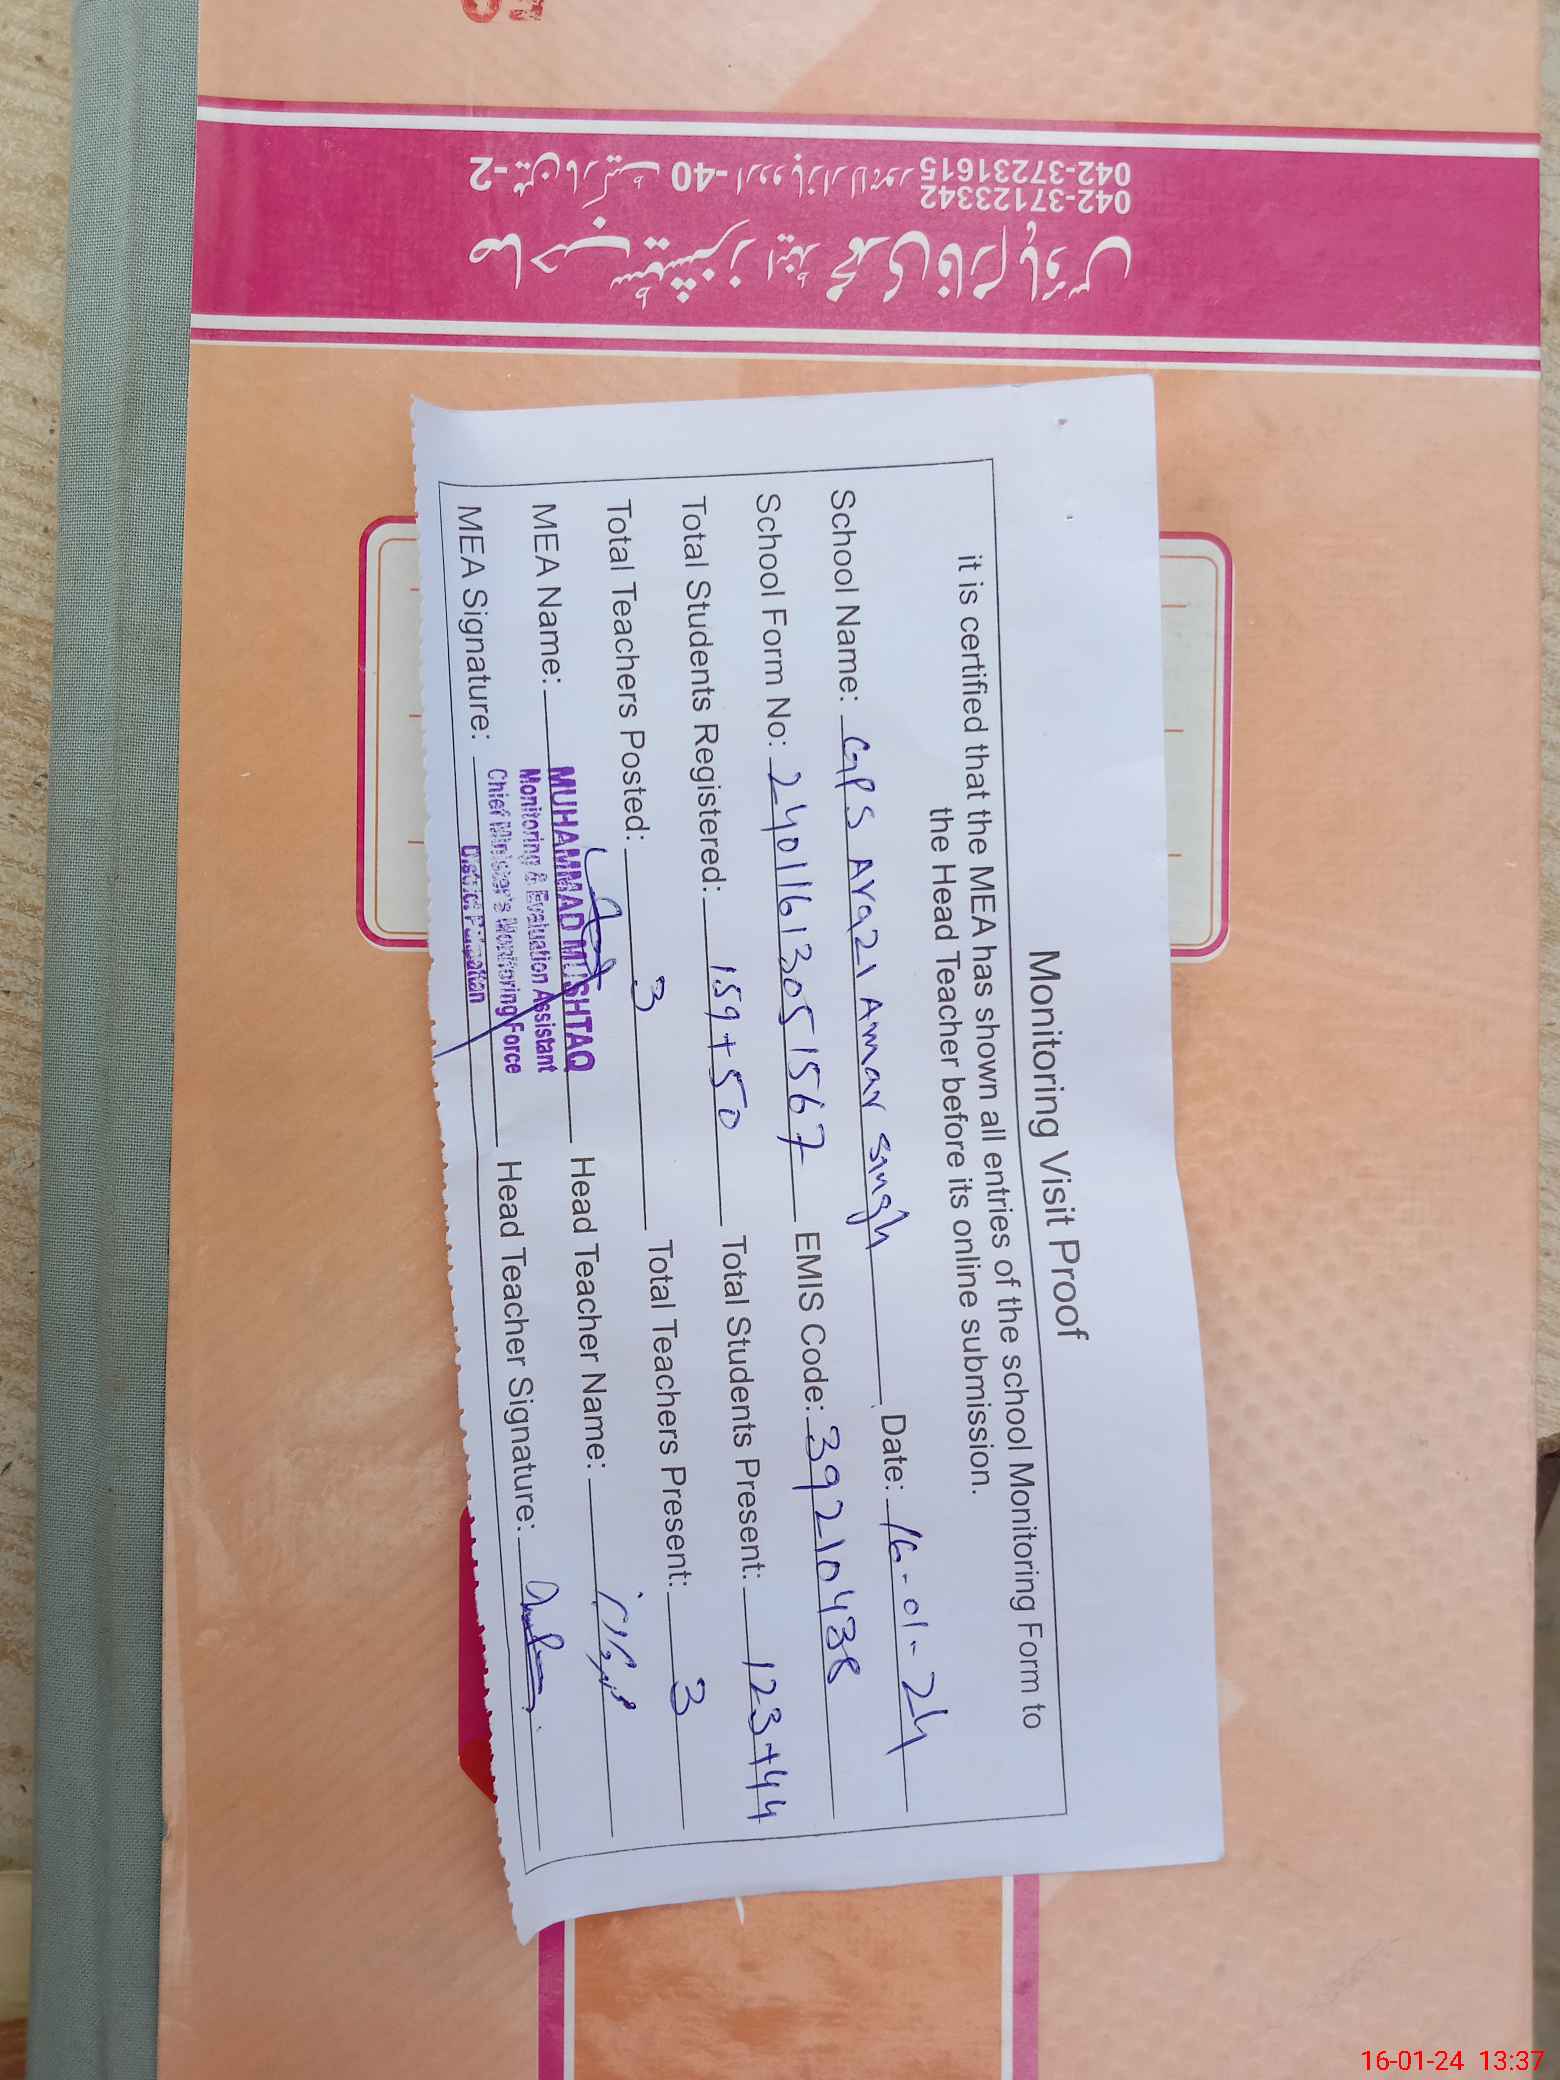 Monitoring Visit Proof
it is certified that the MEA has shown all entries of the school Monitoring Form to
the Head Teacher before its online submission.
School Name: GPS Arazi Amar Singh Date: 16-01-24
School Form No: 24011613051567 EMIS Code: 39210438
Total Students Registered: 159+50 Total Students Present: 123+44
Total Teachers Posted: 3 Total Teachers Present: 3
MEA Name: MUHAMMAD MUSHTAQ Head Teacher Name:
Monitoring & Evaluation Assistant
Chief Minister's Monitoring Force
District Pakpattan
MEA Signature: Head Teacher Signature:
صاحب سٹیشنرز اینڈ محمدی فارم ہاؤس
2- مین مارکیٹ 40- اردو بازار لاہور
042-37123342
042-37231615
16-01-24 13:37